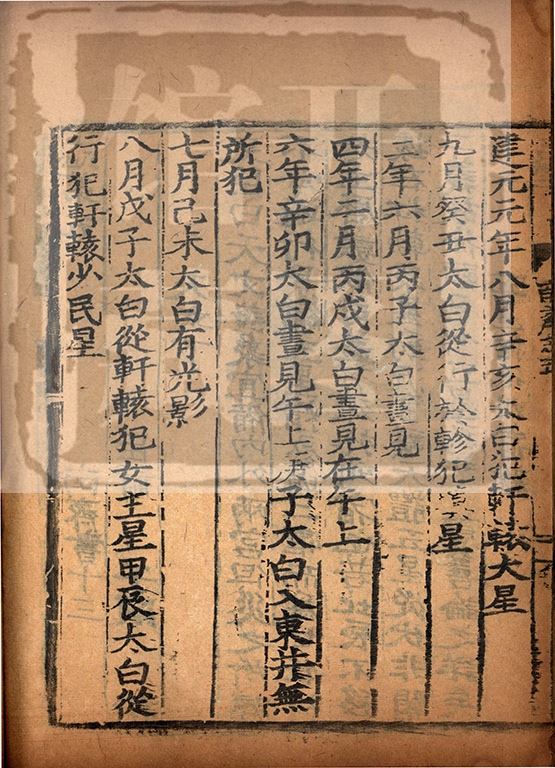 建元元年八月辛亥太白犯軒轅大星
九月癸丑太白從行於軫犯星
二年六月丙子太白晝見
四年二月丙戌太白晝見在午上
六年辛卯太白晝見午上子太白入東井無
所犯
七月己未太白有光影
八月戊子太白從軒轅犯女主星甲辰太白從
行犯軒轅少民星